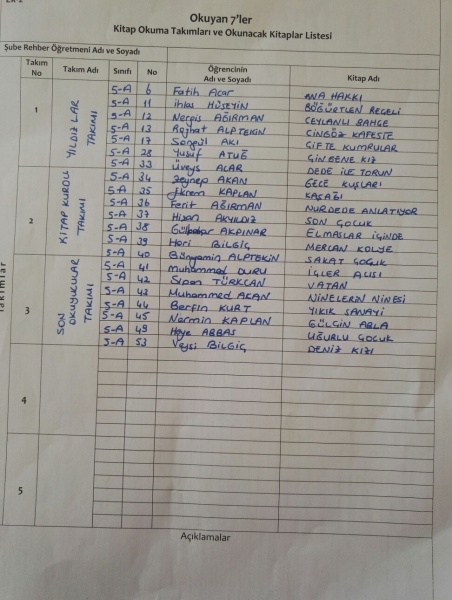 Okuyan 7'ler
Kitap Okuma Takımları ve Okunacak Kitaplar Listesi
Şube Rehber Öğretmeni Adı ve Soyadı
Takım No Takım Adı Sınıfı No Öğrencinin Adı ve Soyadı Kitap Adı
1 YILDIZLAR TAKIMI
5-A 6 Fatih Acar ANA HAKKI
5-A 11 ihlas HÜSEYİN BÖĞÜRTLEN REÇELİ
5-A 12 Nergis AĞIRMAN CEYLANLI BAHÇE
5-A 13 Rojhat ALPTEKİN CİNGÖZ KAFESTE
5-A 17 Songül AKI ÇİFTE KUMRULAR
5-A 28 Yusuf ATUĞ ÇİNGENE KIZ
5-A 33 Üveys ACAR DEDE İLE TORUN
2 KİTAP KURDU TAKIMI
5-A 34 Zeynep AKAN GECE KUŞLARI
5-A 35 Ekrem KAPLAN KAÇAĞI
5-A 36 Ferit AĞIRMAN NUR DEDE ANLATIYOR
5-A 37 AKYILDIZ SON ÇOCUK
5-A 38 AKPINAR ELMASLAR İÇİNDE
5-A 39 BİLGİÇ MERCAN KOLYE
5-A 40 Bünyamin ALPTEKİN SAKAT ÇOCUK
3 SON OKUYUCULAR TAKIMI
5-A 41 Muhammed DURU İÇLER ACISI
5-A 42 Sipan TÜRKCAN VATAN
5-A 43 Muhammed AKAN NİNELERİN NİNESİ
5-A 44 Berfin KURT YIKIK SANAYİ
5-A 45 Nermin KAPLAN GÜLGİN ABLA
5-A 49 ABBAS UĞURLU ÇOCUK
5-A 53 Veysi BİLGİÇ DENİZ KIZI
4
5
Açıklamalar